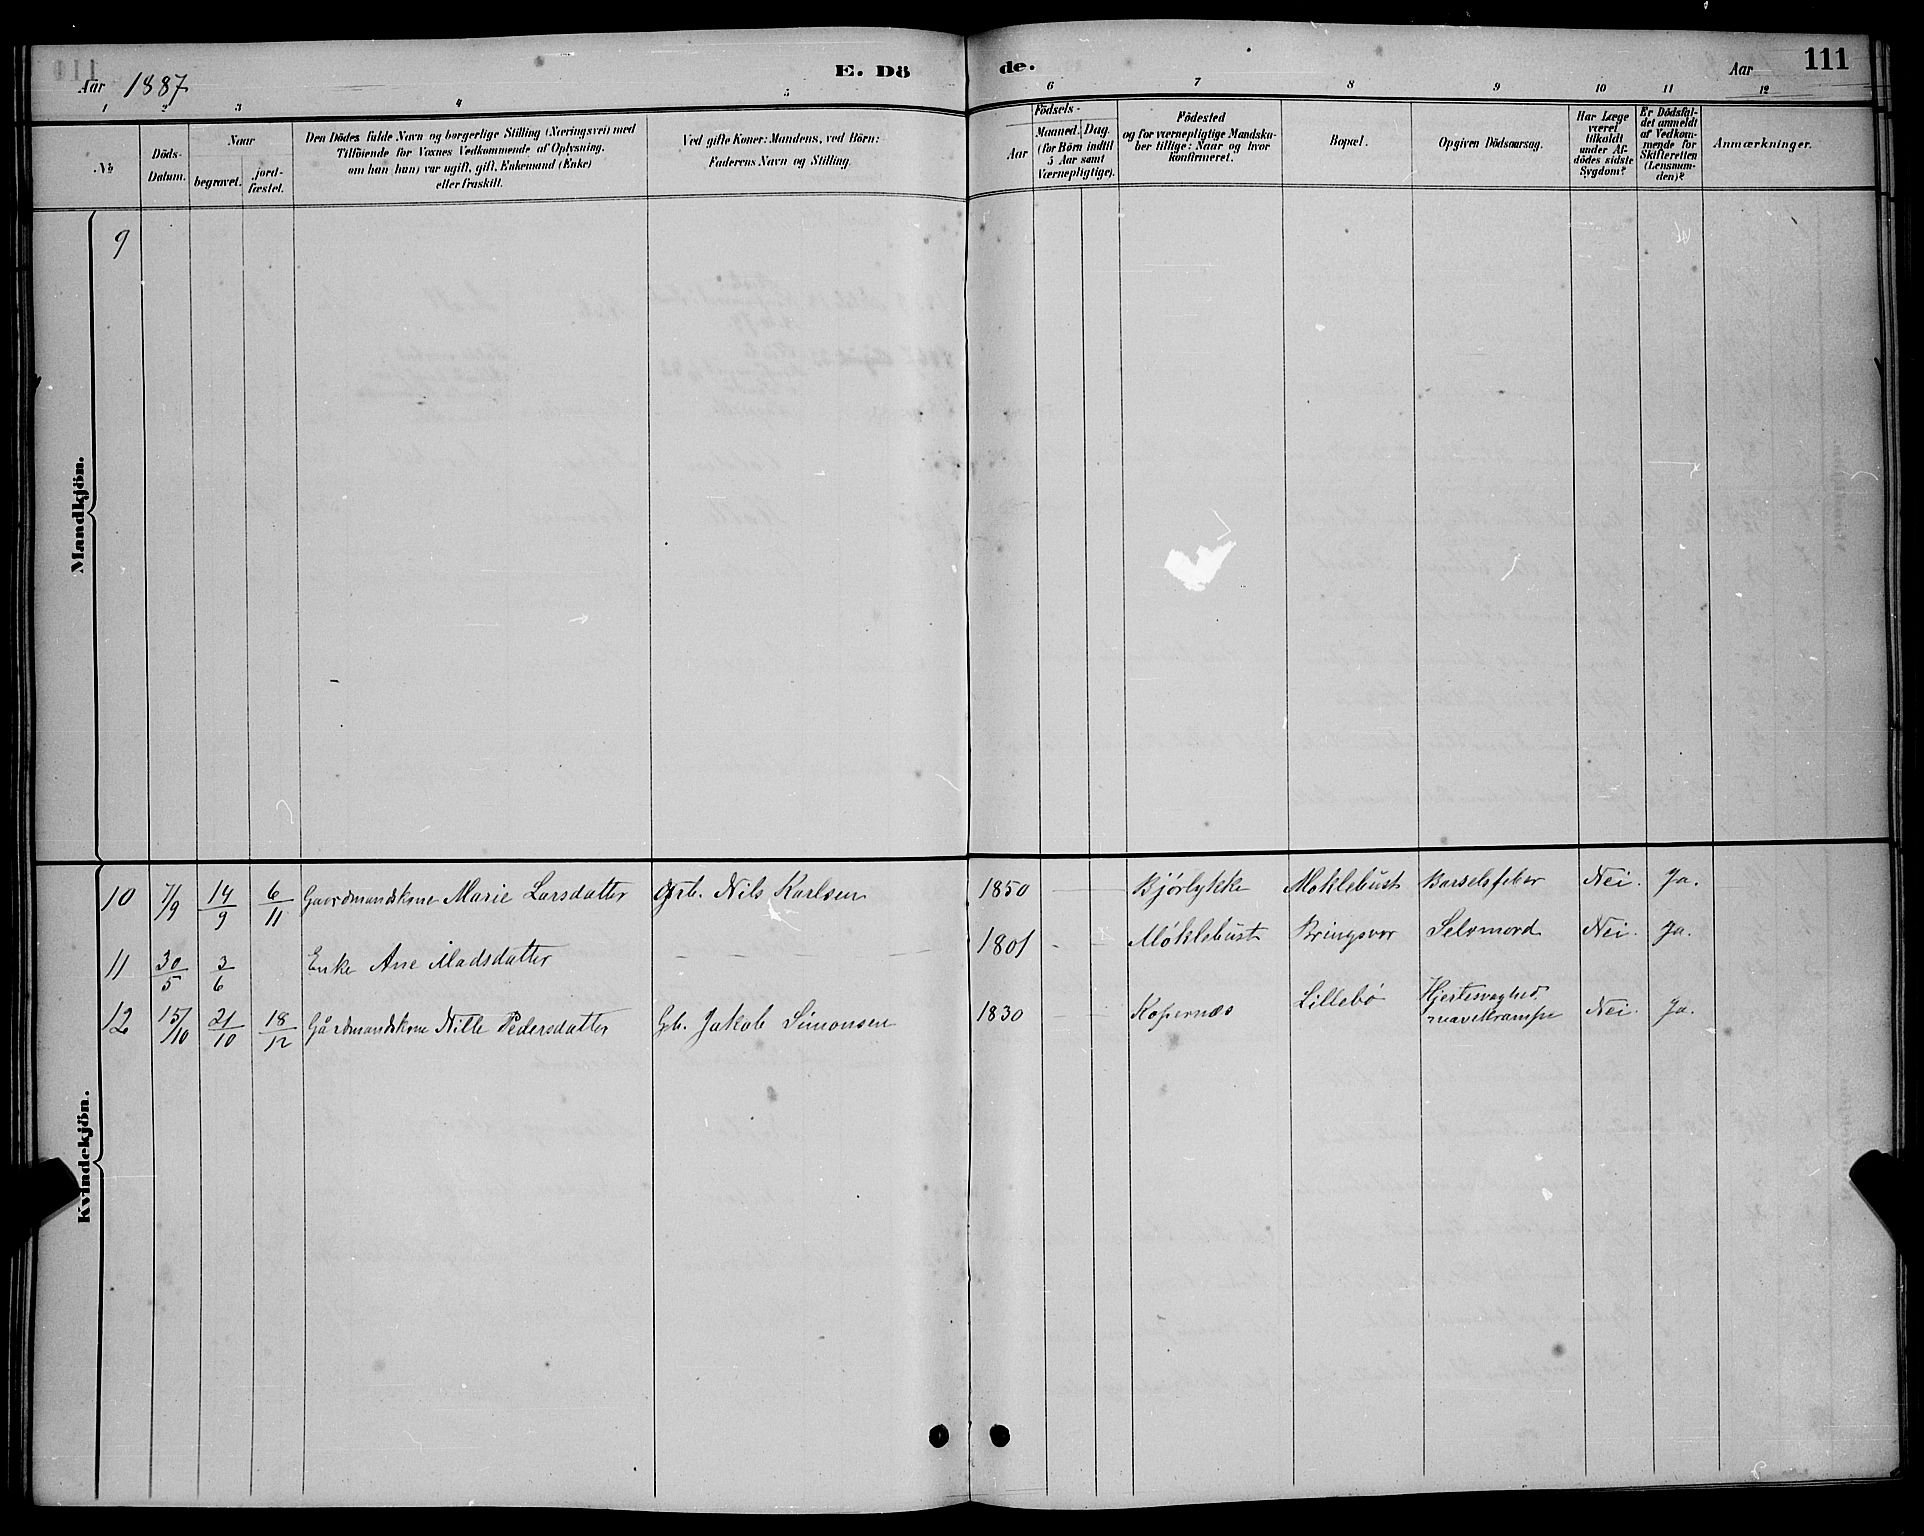 111
Aar 1887
E. Dö
de.
Aar
1
2
3
4
5
6
7
8
9
10
11
12
No
Döds-
Datum.
Naar
begravet.
jord-
fæstet.
Den Dödes fulde Navn og borgerlige Stilling (Næringsvei) med
Tilföiende for Voxnes Vedkommende af Oplysning,
om han (hun) var ugift, gift, Enkemand (Enke)
eller fraskilt.
Ved gifte Koner: Mandens, ved Börn:
Faderens Navn og Stilling.
Födsels-
Aar
Maaned. Dag.
(for Börn indtil
5 Aar samt
Værnepligtige).
Födested
og for værnepligtige Mandska-
ber tillige: Naar og hvor
konfirmeret.
Bopæl.
Opgiven Dödsaarsag.
Har Læge
været
tilkaldt
under Af-
dödes sidste
Sygdom?
Er Dödsfal-
det anmeldt
af Vedkom-
mende for
Skifteretten
(Lensman-
den)?
Anmærkninger.
Mandkjön.
9
Kvindekjön.
10 7/9 14/9 6/11 Gaardmandskone Marie Larsdatter Grb. Nils Karlsen 1850 — — Bjørlykke Moklebust Barselsfeber Nei. Ja.
11 30/5 3/6 Enke Ane Madsdatter — — — — 1801 — — Møklebust Bringsvor Selvmord Nei. Ja.
12 15/10 21/10 18/12 Gårdmandskone Nille Pedersdatter Gb. Jakob Simonsen 1830 — — Kopernæs Lillebø Hjertesvaghed,
mavekrampe Nei. Ja.